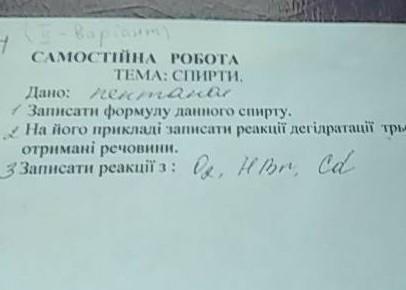 (II - варіант)
САМОСТІЙНА РОБОТА
ТЕМА: СПИРТИ.
Дано: пентанол
1 Записати формулу данного спирту.
2 На його прикладі записати реакції дегідратації трьо
отримані речовини.
3 Записати реакції з : O2, HBr, Cd